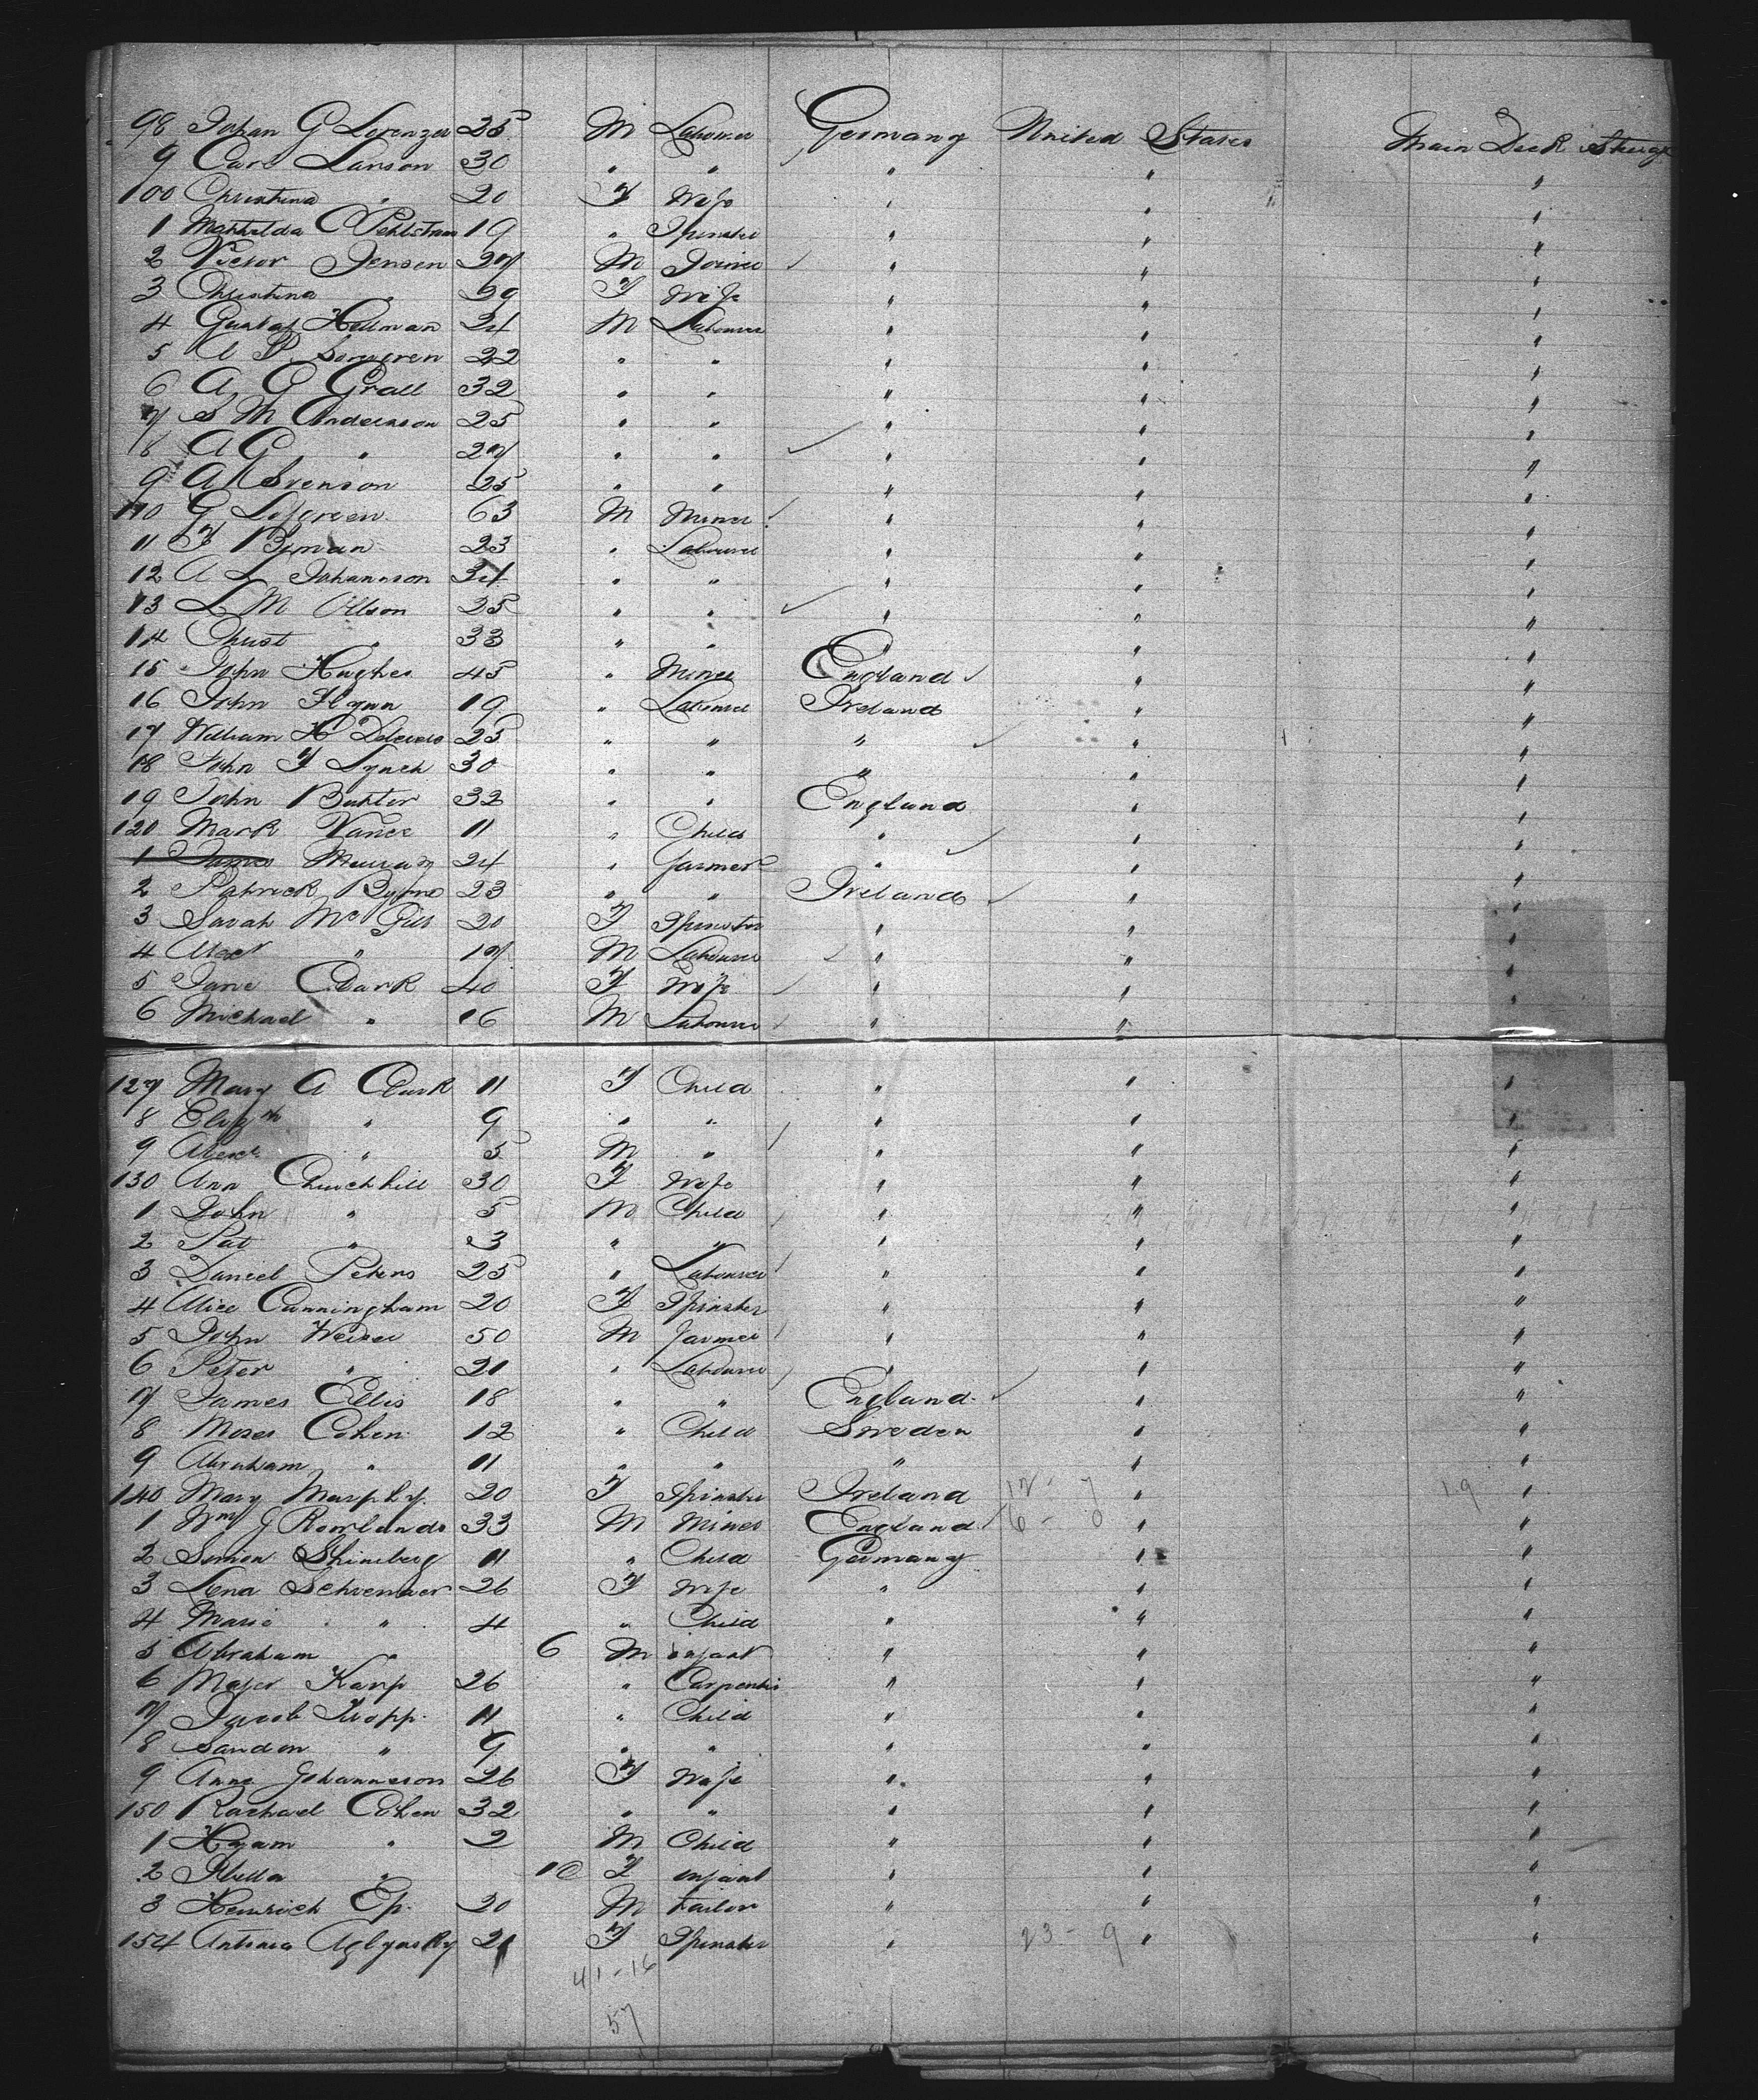 98 Johan G Lorenzen 25 M Labourer Germany United States Main Deck Steerge
9 Carl Larson 30 " " " " "
100 Christina " 20 F Wife " " "
1 Mathilda C 19 " Spinster " " "
2 Victor Jensen 27 M Joiner " " "
3 Christina " 29 F Wife " " "
4 Gustaf Hellman 24 M Labourer " " "
5 A P 22 " " " " "
6 A G Grall 32 " " " " "
7 S M Anderson 25 " " " " "
8 A G " 27 " " " " "
9 A Svenson 25 " " " " "
110 G Lofgreen 63 M Miner " " "
11 F Byman 23 " Labourer " " "
12 A L Johannson 34 " " " " "
13 L M Ollson 25 " " " " "
14 Christ " 33 " " " " "
15 John Hughes 45 " Miner England " "
16 John Flynn 19 " Labourer Ireland " "
17 William H 25 " " " " "
18 John F Lynch 30 " " " " "
19 John Buxter 32 " " England " "
120 Mark Vance 11 " Child " " "
1 James Murray 24 " Farmer " " "
2 Patrick Byrne 23 " " Ireland " "
3 Sarah McGill 20 F Spinster " " "
4 Alexr " 17 M Labourer " " "
5 Jane Clark 40 F Wife " " "
6 Michael " 16 M Labourer " " "
127 Mary A Clark 11 F Child " " "
8 Elizth " 9 " " " " "
9 Alexr " 5 M " " " "
130 Ann Churchhill 30 F Wife " " "
1 John " 5 M Child " " "
2 Pat " 3 " " " " "
3 Daniel Peters 25 " Labourer " " "
4 Alice Cunningham 20 F Spinster " " "
5 John Weiser 50 M Farmer " " "
6 Peter " 21 " Labourer " " "
7 James Ellis 18 " " England " "
8 Moses Cohen 12 " Child Sweden " "
9 Abraham " 11 " " " " "
140 Mary Murphy 20 F Spinster Ireland 12 - 7 " 19 "
1 Wm J Rowlands 33 M Miner England 6 - 0 " "
2 Simon Shineberg 11 " Child Germany " "
3 Lena 26 F Wife " " "
4 Marie " 4 " Child " " "
5 Abraham " 6 M infant " " "
6 Majer Karp 26 " Carpenter " " "
7 Jacob Kropp 11 " Child " " "
8 Sandon " 9 " " " " "
9 Anna Johanneson 26 F Wife " " "
150 Rachael Cohen 32 " " " " "
1 Hyam " 2 M Child " " "
2 " 10 F infant " " "
3 Heinrich Ep 20 M Tailor " " "
154 21 F Spinster " 23 - 9 " "
41 - 16
57